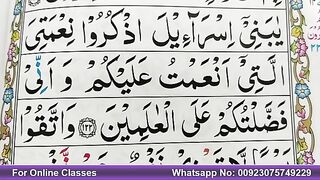 يٰبَنِىْٓ اِسْرَآءِيْلَ اذْكُرُوْا نِعْمَتِىَ
الَّتِىْٓ اَنْعَمْتُ عَلَيْكُمْ وَ اَنِّىْ
فَضَّلْتُكُمْ عَلَى الْعٰلَمِيْنَ ﴿۱۲۲﴾ وَ اتَّقُوْا
For Online Classes Whatsapp No: 00923075749229